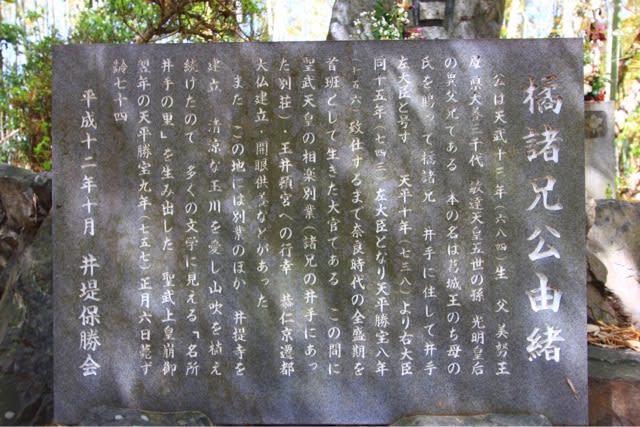 橘諸兄公由緒
公は天武十三年(六八四)生 父 美努王
母 県犬養三千代 敏達天皇五世の孫 光明皇后
の異父兄である 本の名は葛城王のち母の
氏を賜って橘諸兄 井手に住して井手
左大臣と号す 天平十年(七三八)より右大臣
同十五年(七四三)左大臣となり天平勝宝八年
(七五六)致仕するまで奈良時代の全盛期を
首班として生きた大官である この間に
聖武天皇の相楽別業(諸兄の井手にあっ
た別荘)・玉井頓宮への行幸 恭仁京遷都
大仏建立・開眼供養などがあった
また この地には別業のほか 井提寺を
建立 清涼な玉川を愛し山吹を植え
続けたので 多くの文学に見える「名所
井手の里」を生み出した 聖武上皇崩御
翌年の天平勝宝九年(七五七)正月六日薨ず
齢七十四
平成十二年十月 井堤保勝会